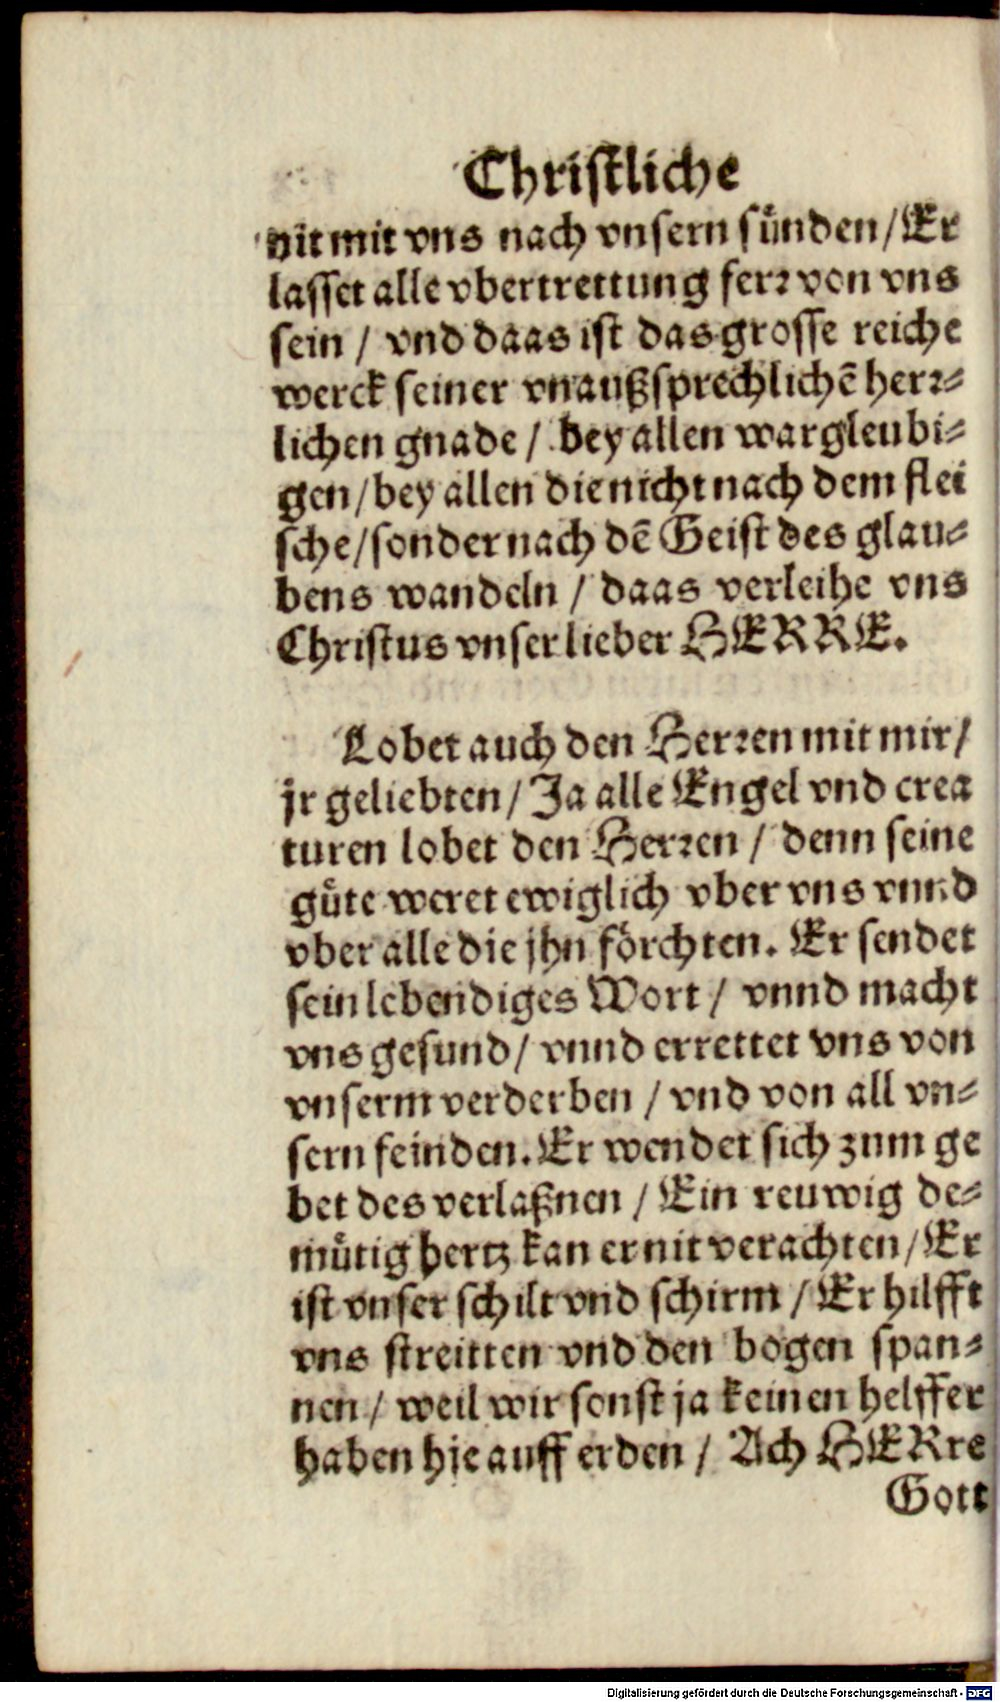 Christliche
nit mit vns nach vnsern sünden / Er
lasset alle vbertrettung ferr von vns
sein / vnd daas ist das grosse reiche
werck seiner vnaußsprechlichē herr-
lichen gnade / bey allen wargleubi-
gen / bey allen die nicht nach dem flei
sche / sonder nach dē Geist des glau-
bens wandeln / daas verleihe vns
Christus vnser lieber HERRE.
Lobet auch den Herren mit mir /
jr geliebten / Ja alle Engel vnd crea
turen lobet den Herren / denn seine
güte weret ewiglich vber vns vnnd
vber alle die jhn förchten. Er sendet
sein lebendiges Wort / vnnd macht
vns gesund / vnnd errettet vns von
vnserm verderben / vnd von all vn-
sern feinden. Er wendet sich zum ge
bet des verlaßnen / Ein reuwig de-
mütig hertz kan er nit verachten / Er
ist vnser schilt vnd schirm / Er hilfft
vns streitten vnd den bogen span-
nen / weil wir sonst ja keinen helffer
haben hie auff erden / Ach HERre
Gott
Digitalisierung gefördert durch die Deutsche Forschungsgemeinschaft - DFG